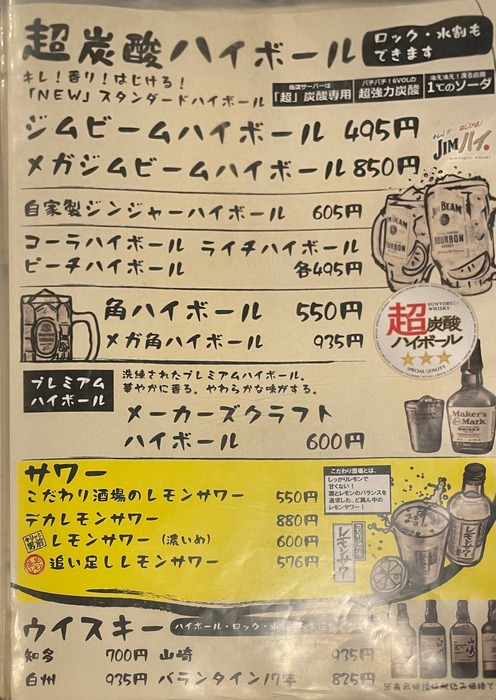 超炭酸ハイボール
ロック・水割も
できます
キレ！香り！はじける！
「NEW」スタンダードハイボール
当店サーバーは
「超」炭酸専用
バチバチ！6VOLの
超強力炭酸
冷え冷え！凍る直前
1℃のソーダ
ジムビームハイボール 495円
メガジムビームハイボール 850円
JIMハイ。
自家製ジンジャーハイボール 605円
コーラハイボール ライチハイボール
ピーチハイボール 各495円
BEAM
BOURBON
BEAM
BOURBON
角ハイボール 550円
メガ角ハイボール 935円
SUNTORY
WHISKY
超炭酸
ハイボール
SPECIAL QUALITY
プレミアム
ハイボール
洗練されたプレミアムハイボール。
華やかに香る。やわらかな味がする。
メーカーズクラフト
ハイボール 600円
Maker's
Mark
WHISKY
サワー
こだわり酒場のレモンサワー 550円
デカレモンサワー 880円
レモンサワー（濃いめ） 600円
追い足しレモンサワー 576円
こだわり酒場とは、
しっかりレモンで
甘くない！
酒とレモンのバランスを
追求した、ど真ん中の
レモンサワー！
レモンサワー
レモンサワー
ウイスキー
ハイボール・ロック・水割
知多 700円 山崎 935円
白州 935円 バランタイン17年 825円
山崎
※表示価格は税込み価格で